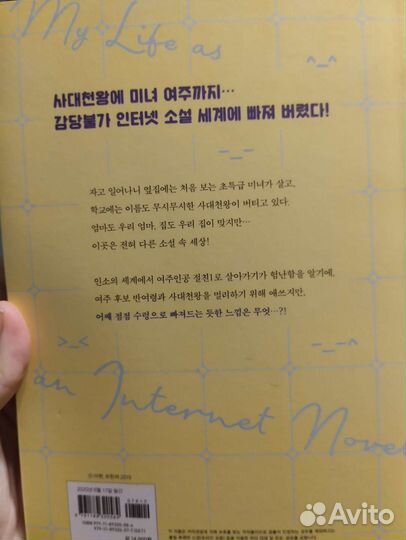 My Life as
^_^
사대천왕에 미녀 여주까지…
감당불가 인터넷 소설 세계에 빠져 버렸다!
자고 일어나니 옆집에는 처음 보는 초특급 미녀가 살고,
학교에는 이름도 무시무시한 사대천왕이 버티고 있다.
엄마도 우리 엄마, 집도 우리 집이 맞지만…
이곳은 전혀 다른 소설 속 세상!
인소의 세계에서 여주인공 절친1로 살아가기가 험난함을 알기에,
여주 후보 반여령과 사대천왕을 멀리하기 위해 애쓰지만,
어째 점점 수렁으로 빠져드는 듯한 느낌은 무엇…?!
>_<
^_^
an Internet Novel
Avito